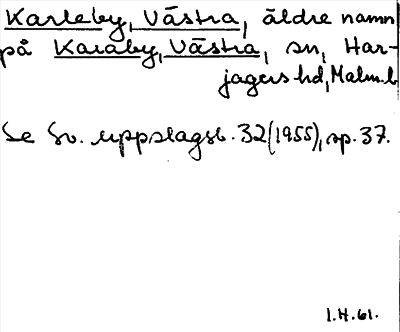 Karleby, Västra, äldre namn
på Karaby, Västra, sn, Har-
jagers hd, Malm.l.
Se Sv. uppslagsb. 32 (1955), sp. 37.
I.H. 61.